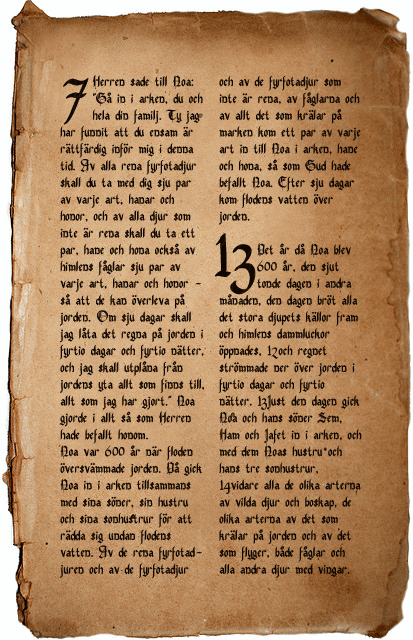 7 Herren sade till Noa:
"Gå in i arken, du och
hela din familj. Ty jag
har funnit att du ensam är
rättfärdig inför mig i denna
tid. Av alla rena fyrfotadjur
skall du ta med dig sju par
av varje art, hanar och
honor, och av alla djur som
inte är rena skall du ta ett
par, hane och hona också av
himlens fåglar sju par av
varje art, hanar och honor -
så att de kan överleva på
jorden. Om sju dagar skall
jag låta det regna på jorden i
fyrtio dagar och fyrtio nätter,
och jag skall utplåna från
jordens yta allt som finns till,
allt som jag har gjort." Noa
gjorde i allt så som Herren
hade befallt honom.
Noa var 600 år när floden
översvämmade jorden. Då gick
Noa in i arken tillsammans
med sina söner, sin hustru
och sina sonhustrur för att
rädda sig undan flodens
vatten. Av de rena fyrfotad-
juren och av de fyrfotadjur
och av de fyrfotadjur som
inte är rena, av fåglarna och
av allt det som krälar på
marken kom ett par av varje
art in till Noa i arken, hane
och hona, så som Gud hade
befallt Noa. Efter sju dagar
kom flodens vatten över
jorden.
13 Det år då Noa blev
600 år, den sjut
tonde dagen i andra
månaden, den dagen bröt alla
det stora djupets källor fram
och himlens dammluckor
öppnades, 12och regnet
strömmade ner över jorden i
fyrtio dagar och fyrtio
nätter. 13Just den dagen gick
Noa och hans söner Sem,
Ham och Jafet in i arken, och
med dem Noas hustru och
hans tre sonhustrur,
14vidare alla de olika arterna
av vilda djur och boskap, de
olika arterna av det som
krälar på jorden och av det
som flyger, både fåglar och
alla andra djur med vingar.